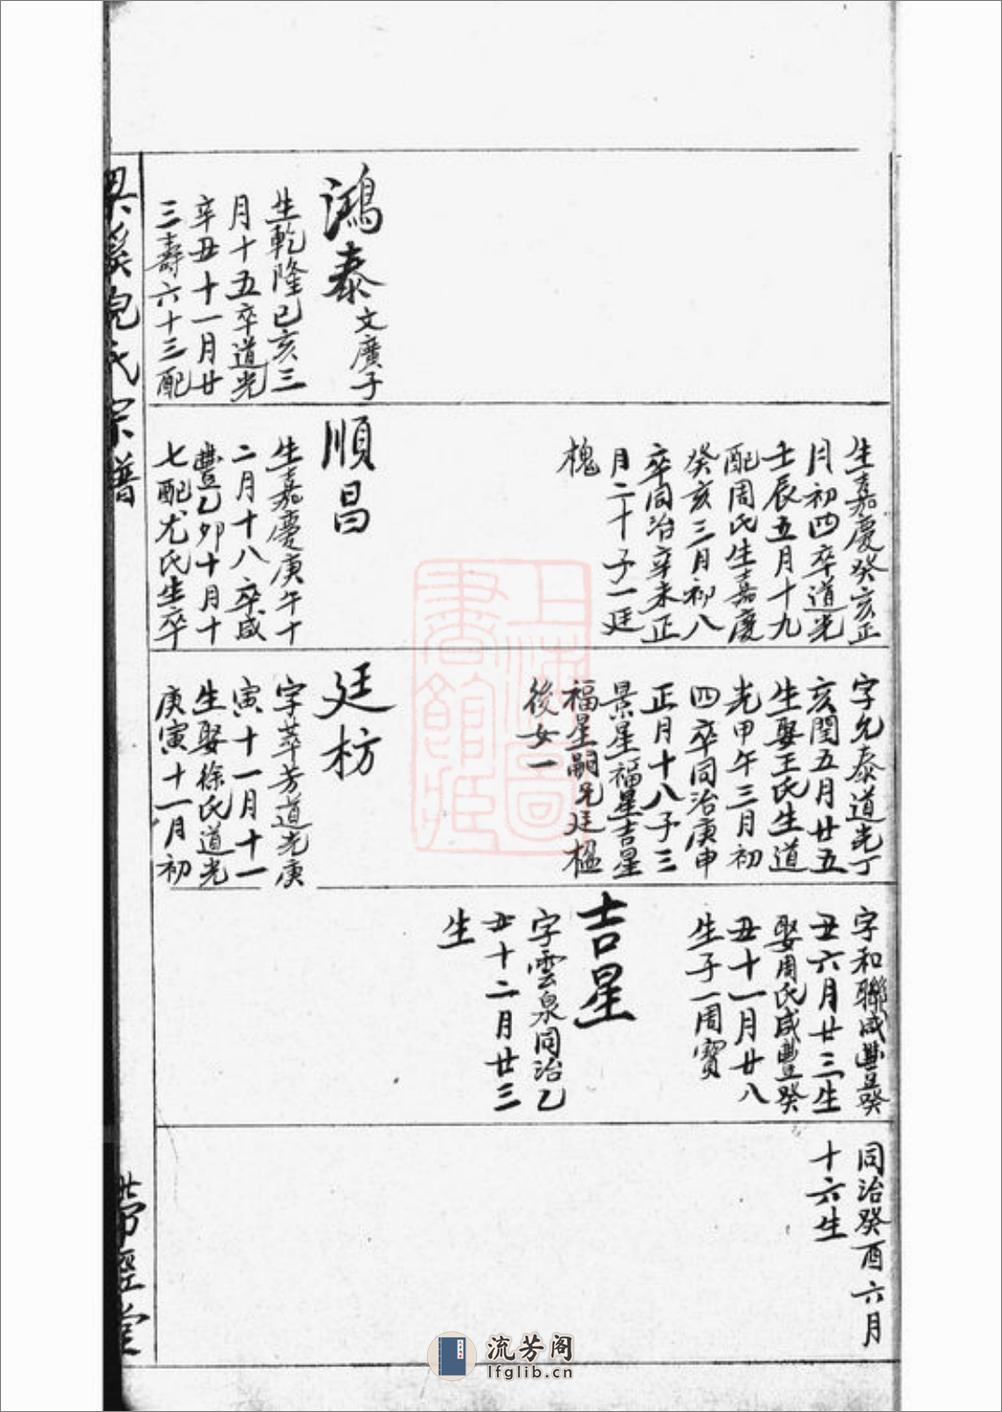 生嘉慶癸亥正
月初四卒道光
壬辰五月十九
配周氏生嘉慶
癸亥三月初八
卒同治辛未正
月二十子一廷
槐
字允泰道光丁
亥閏五月廿五
生娶王氏生道
光甲午三月初
四卒同治庚申
正月十八子三
景星福星吉星
福星嗣兄廷楹
後女一
字和聯咸豐癸
丑六月廿三生
娶周氏咸豐癸
丑十一月廿八
生子一周寶
同治癸酉六月
十六生
吉星
字雲泉同治乙
丑十二月廿三
生
鴻泰文廣子
生乾隆己亥三
月十五卒道光
辛丑十一月廿
三壽六十三配
順昌
生嘉慶庚午十
二月十八卒咸
豐乙卯十月十
七配尤氏生卒
廷枋
字萃芳道光庚
寅十一月十一
生娶徐氏道光
庚寅十一月初
溪倪氏宗譜
帶經堂
上海圖
書館藏
流芳阁
lfglib.cn